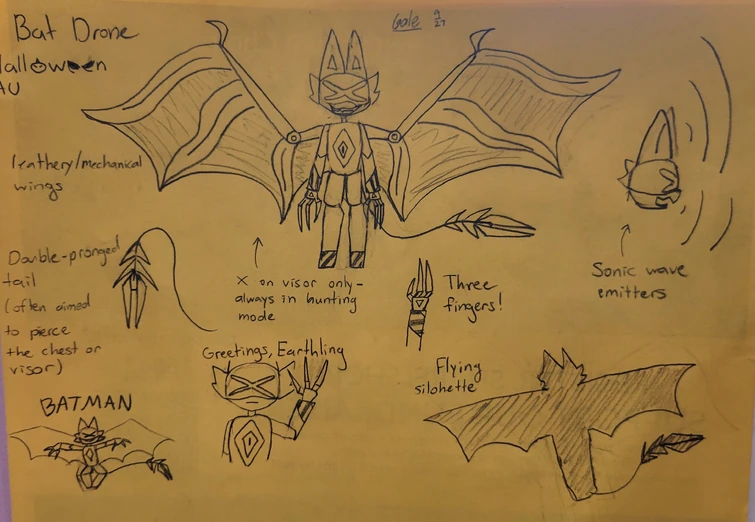 Bat Drone
Halloween
AU
Gale 9/27
leathery/mechanical
wings
Double-pronged
tail
(often aimed
to pierce
the chest or
visor)
X on visor only-
always in hunting
mode
Three
fingers!
Sonic wave
emitters
Greetings, Earthling
Flying
silohette
BATMAN